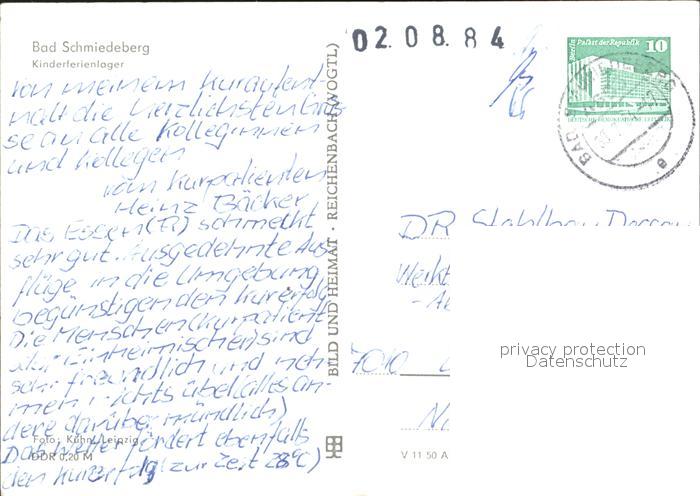 Bad Schmiedeberg
Kinderferienlager
Von meinem Kuraufent
halt die herzlichsten Grüs
se an alle Kolleginnen
und Kollegen
vom Kurpatienten
Heinz Bäcker
Das Essen schmeckt
sehr gut. Ausgedehnte Aus
flüge in die Umgebung
begünstigen den Kurerfolg
Die Menschen (Kurpatient
Einheimischen) sind
sehr freundlich und neh-
men nichts übel (alles an-
dere darüber mündlich)
Das Wetter fördert ebenfalls
den Kurerfolg (zur Zeit 28°C)
Foto: Kühn, Leipzig
DDR 0,20 M
BILD UND HEIMAT · REICHENBACH (VOGTL)
V 11 50 A
02.08.84
Berlin Palast der Republik
10
DEUTSCHE DEMOKRATISCHE REPUBLIK
BAD SCHMIEDEBERG
DR Stahlbau Dessau
Werkt
7010
privacy protection
Datenschutz